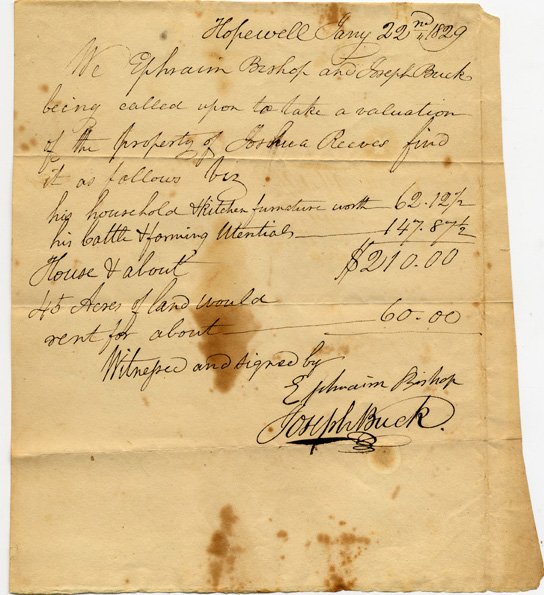 Hopewell Jany 22nd 1829
We Ephraim Bishop and Joseph Buck
being called upon to take a valuation
of the property of Joshua Reeves find
it as follows viz
his household & kitchen furneture worth 62.12½
his Cattle & farming Utentials 147.87½
House & about $210.00
45 Acres of land would
rent for about 60.00
Witnessed and signed by
Ephraim Bishop
Joseph Buck.